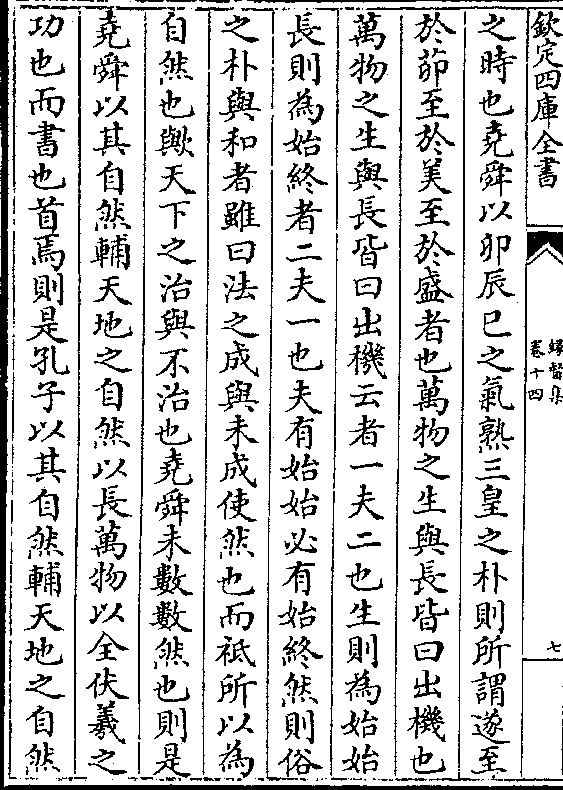 欽定四庫全書
緣督集
卷十四
七
之時也堯舜以卯辰巳之氣熟三皇之朴則所謂遂至
於茆至於美至於盛者也萬物之生與長皆曰出機也
萬物之生與長皆曰出機云者一夫二也生則為始始
長則為始終者二夫一也夫有始始必有始終然則俗
之朴與和者雖曰法之成與未成使然也而祗所以為
自然也歟天下之治與不治也堯舜未數數然也則是
堯舜以其自然輔天地之自然以長萬物以全伏羲之
功也而書也首焉則是孔子以其自然輔天地之自然